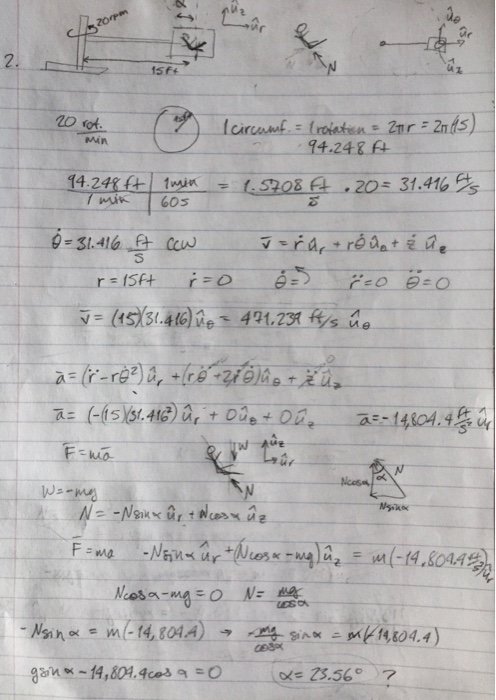 20rpm α û_z û_r
û_θ û_r û_z N
15ft
2.
20 rot. / min 1 circumf. = 1 rotation = 2πr = 2π(15)
94.248 ft
94.248 ft | 1min / 1 min | 60s = 1.5708 ft/s · 20 = 31.416 ft/s
θ̇ = 31.416 ft/s CCW v̄ = ṙ û_r + rθ̇ û_θ + ż û_z
r = 15ft ṙ = 0 θ̇ = r̈ = 0 θ̈ = 0
v̄ = (15)(31.416) û_θ = 471.239 ft/s û_θ
ā = (r̈ - rθ̇²) û_r + (rθ̈ + 2ṙθ̇) û_θ + z̈ û_z
ā = (-(15)(31.416²) û_r + 0û_θ + 0û_z ā = -14,804.4 ft/s² û_r
F̄ = mā W û_z û_r N
W = -mg Ncosα α N Nsinα
N = -Nsinα û_r + Ncosα û_z
F̄ = ma -Nsinα û_r + (Ncosα - mg) û_z = m(-14,804.4 ft/s²) û_r
Ncosα - mg = 0 N = mg/cosα
-Nsinα = m(-14,804.4) → -mg/cosα sinα = m(-14,804.4)
gsinα - 14,804.4cosα = 0 α = 23.56° ?